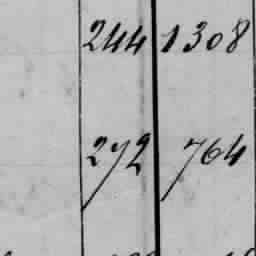 244 1308
272 764